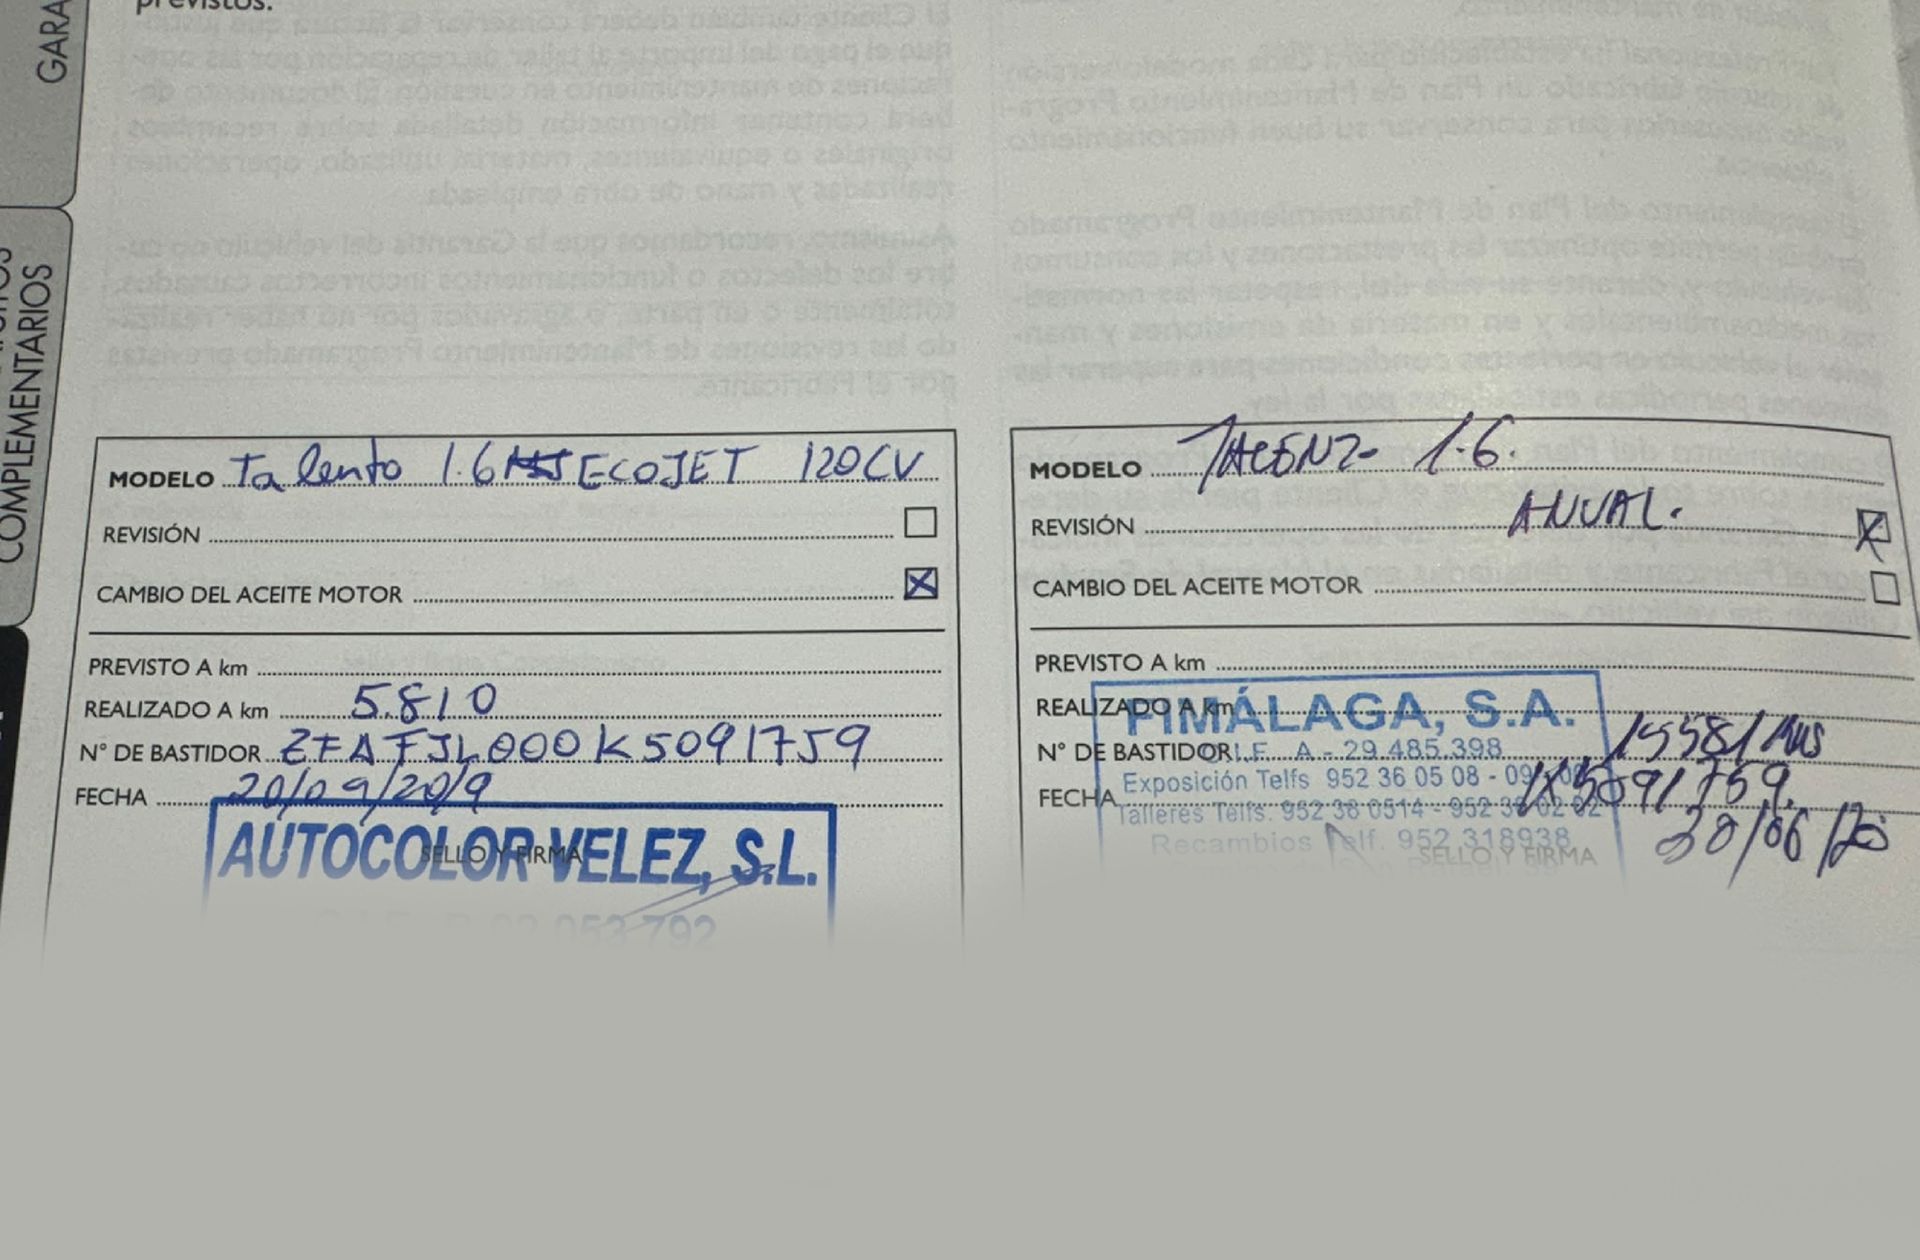 previstos.
GARA
COMPLEMENTARIOS
MODELO Talento 1.6 ECOJET 120CV
REVISIÓN
CAMBIO DEL ACEITE MOTOR
PREVISTO A km
REALIZADO A km 5.810
N° DE BASTIDOR ZFAFJL000K5091759
FECHA 20/09/2019
SELLO Y FIRMA
AUTOCOLOR VELEZ, S.L.
MODELO 1.6.
REVISIÓN ANUAL.
CAMBIO DEL ACEITE MOTOR
PREVISTO A km
REALIZADO A km
N° DE BASTIDOR
FECHA
SELLO Y FIRMA
FIMÁLAGA, S.A.
C.I.F. A - 29.485.398
Exposición Telfs 952 36 05 08 - 09
Talleres Telfs. 952 36 0514 - 952 36 02 02
Recambios Telf. 952 318938
15581 kms
K5091759.
30/06/20